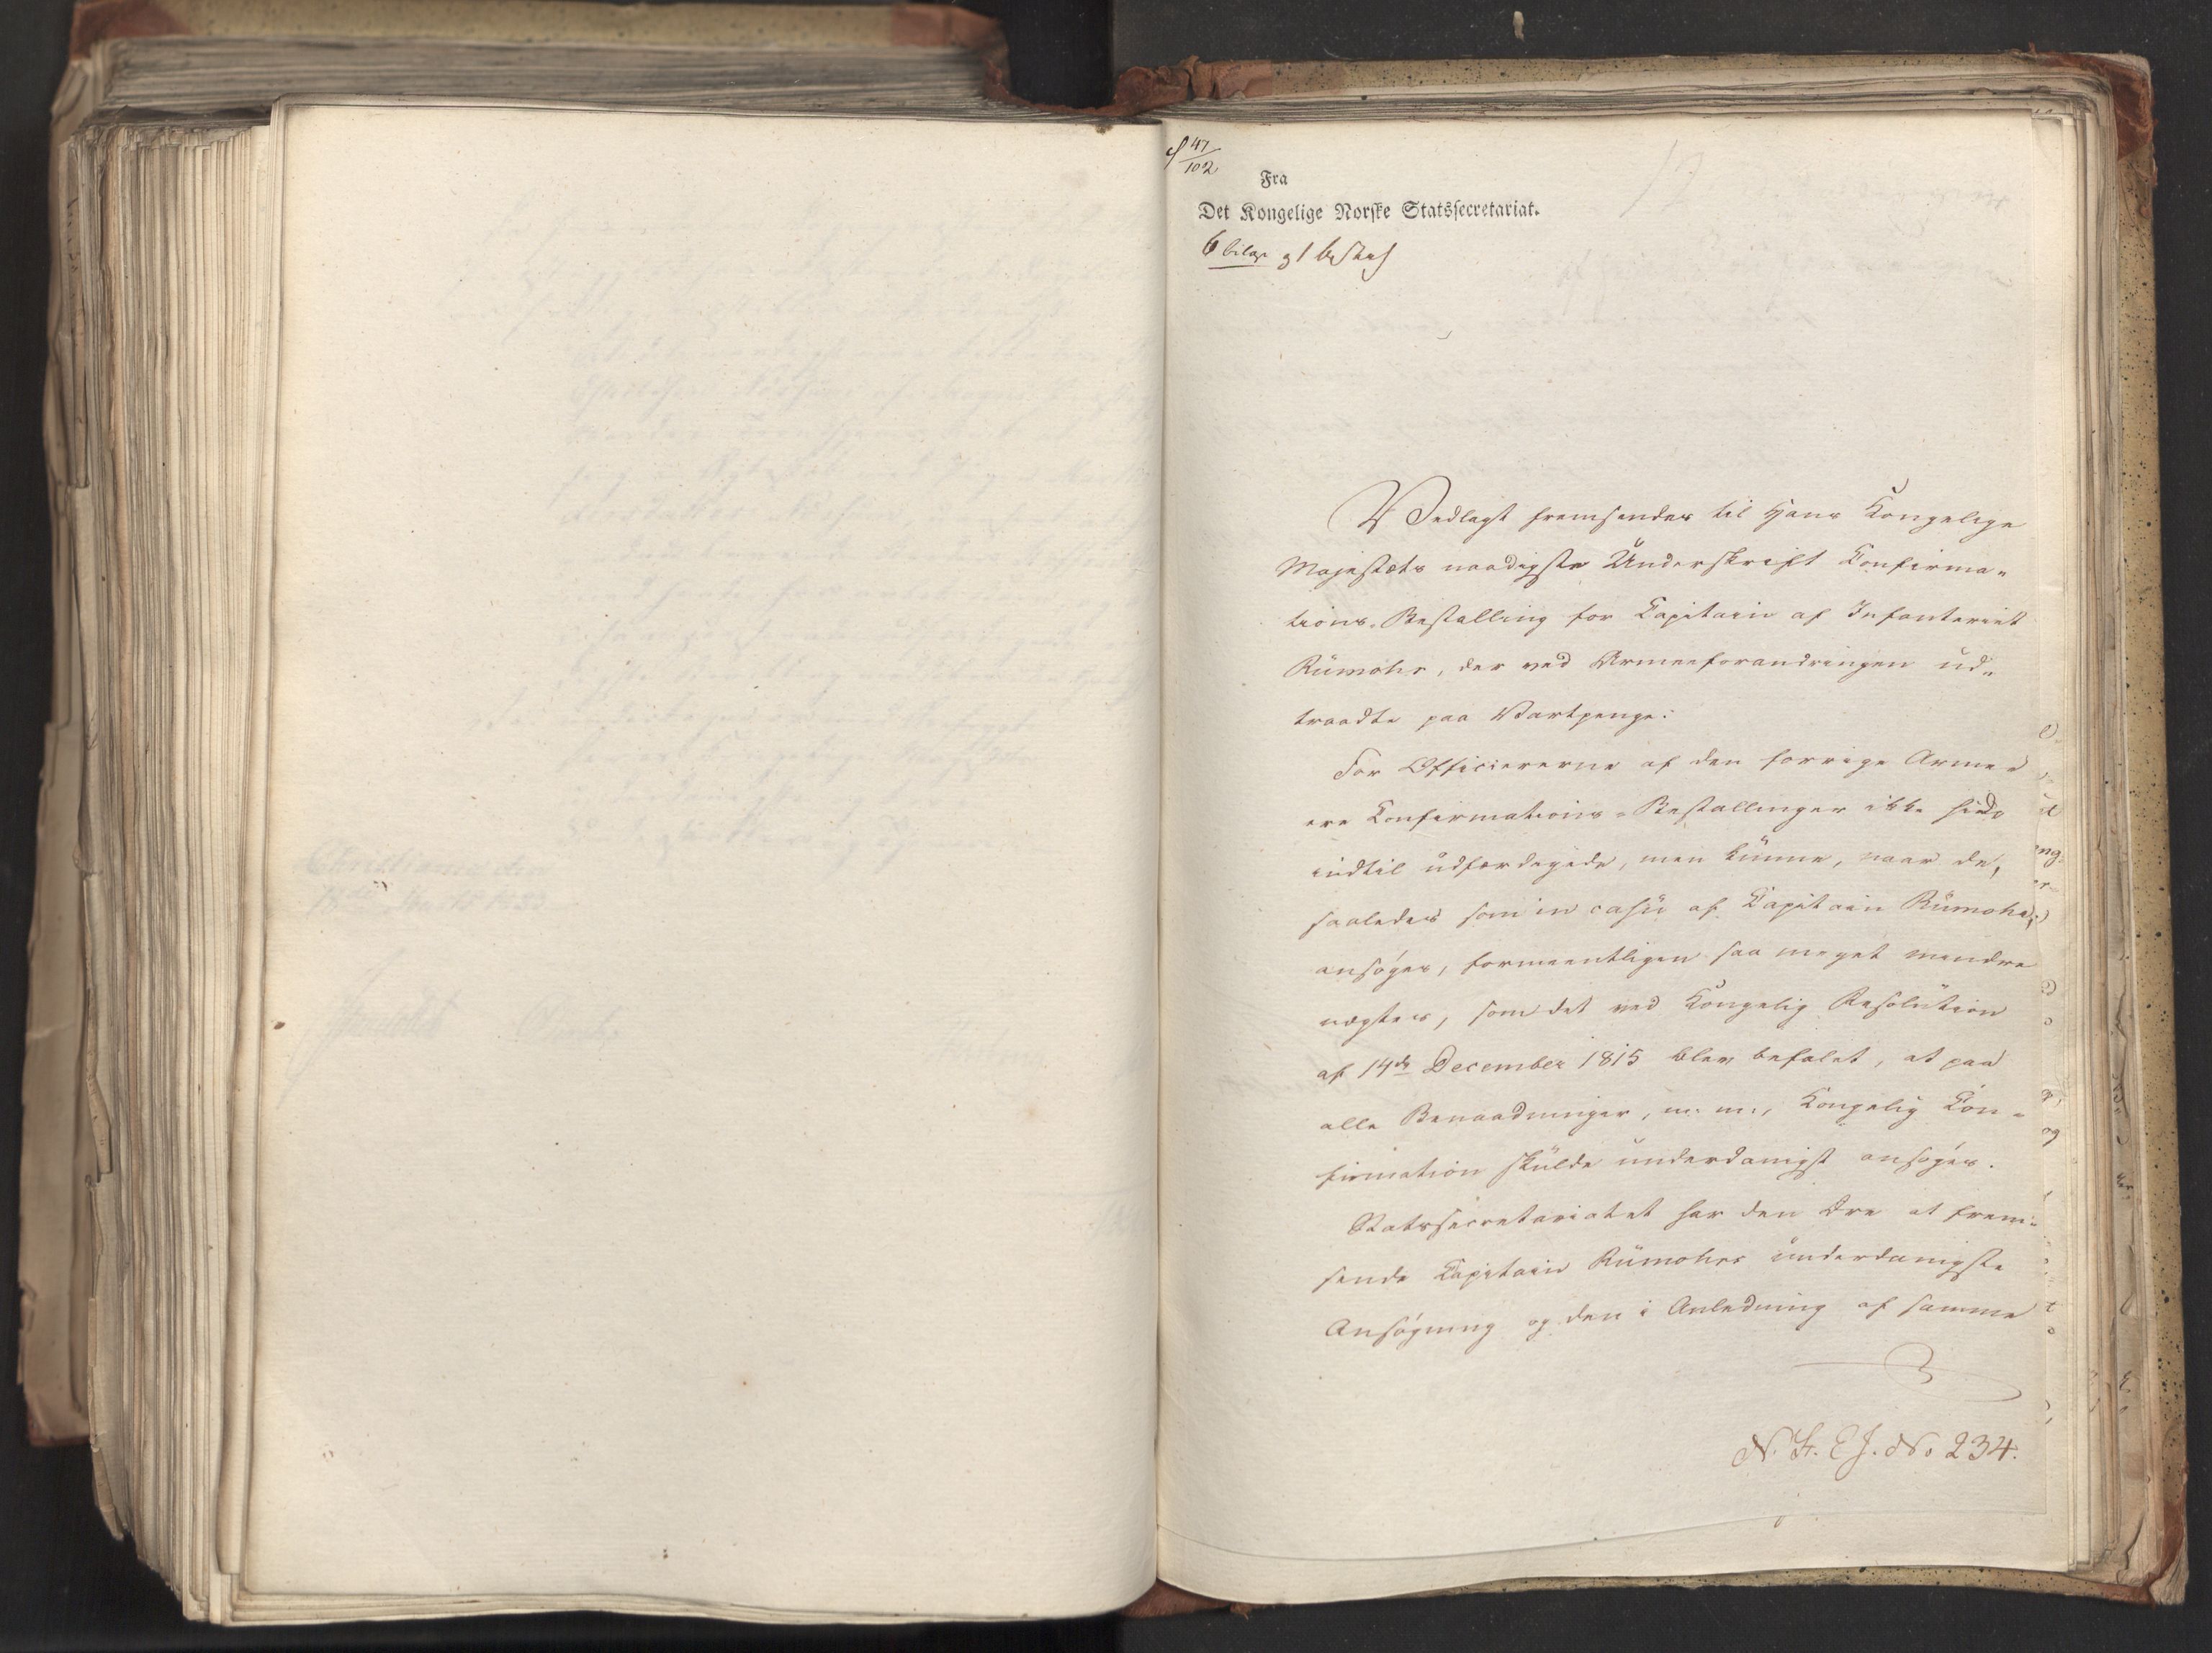 47
102
Fra
Det Kongelige Norske Statssecretariat.
6 bilage og 1
Vedlagt fremsendes til Hans Kongelige
Majestæts naadigste Underskrift Confirma-
tions-Bestalling for Capitain af Infanteriet
Rumohr, der ved Armeeforandringen ud-
traadte paa Vartpenge:
For Officiererne af den forrige Armee
ere Confirmations-Bestallinger ikke hid-
indtil udfærdigede, men kunne, naar de,
saaledes som in casu af Capitain Rumohr,
ansøges, formeentligen saa meget mindre
nægtes, som det ved Kongelig Resolution
af 14de December 1815 blev befalet, at paa
alle Benaadninger, m: m:, Kongelig Con-
firmation skulde underdanigst ansøges.
Statssecretariatet har den Ære at frem-
sende Capitain Rumohrs underdanigste
Ansøgning og den i Anledning af samme
N. St. E J. No 234.